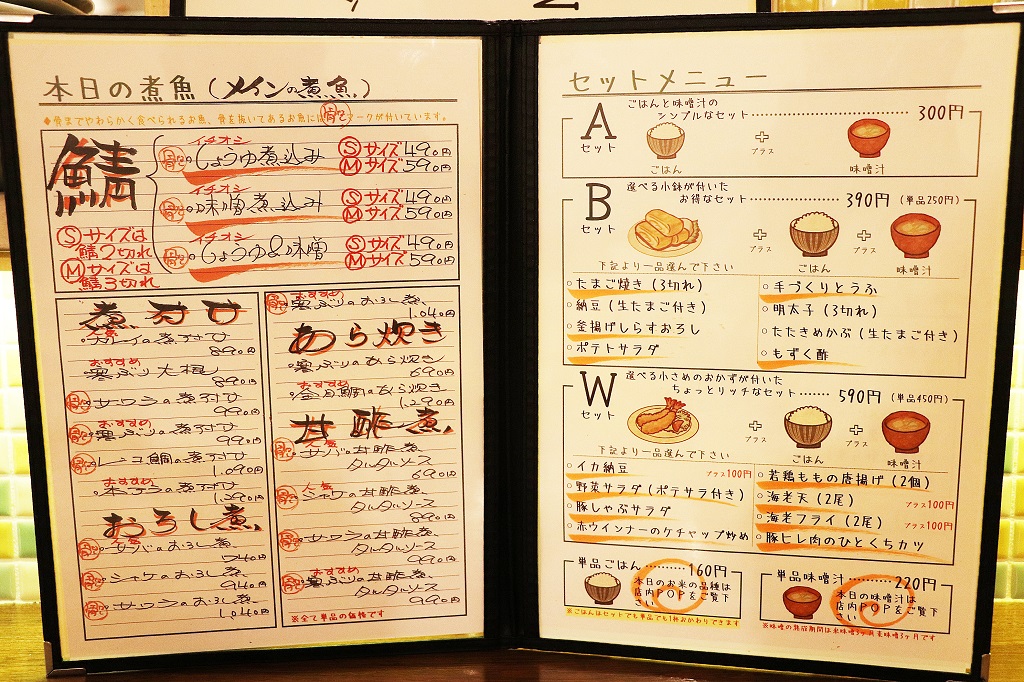 本日の煮魚(メインの煮魚)
◆骨までやわらかく食べられるお魚、骨を抜いてあるお魚には 骨なし マークが付いています。
鯖
イチオシ
しょうゆ煮込み
Ⓢサイズ490円
Ⓜサイズ590円
イチオシ
味噌煮込み
Ⓢサイズ490円
Ⓜサイズ590円
イチオシ
しょうゆ&味噌
Ⓢサイズ490円
Ⓜサイズ590円
Ⓢサイズは
鯖2切れ
Ⓜサイズは
鯖3切れ
煮付け
人気
の煮付け
890円
おすすめ
寒ぶり大根
890円
サワラの煮付け
990円
おすすめ
寒ぶりの煮付け
990円
レンコ鯛の煮付け
1,090円
おすすめ
の煮付け
おろし煮
人気
サバのおろし煮
740円
シャケのおろし煮
940円
サワラのおろし煮
1,040円
おすすめ
寒ぶりのおろし煮
1,040円
あら炊き
寒ぶりのあら炊き
690円
おすすめ
金目鯛のあら炊き
1,290円
甘酢煮
人気
サバの甘酢煮
タルタルソース
690円
人気
シャケの甘酢煮
タルタルソース
890円
サワラの甘酢煮
タルタルソース
990円
おすすめ
寒ぶりの甘酢煮
タルタルソース
990円
※全て単品の価格です
セットメニュー
A
セット
ごはんと味噌汁の
シンプルなセット 300円
ごはん
プラス
味噌汁
B
セット
選べる小鉢が付いた
お得なセット 390円 (単品250円)
プラス
ごはん
プラス
味噌汁
下記より一品選んで下さい
○たまご焼き(3切れ)
○納豆(生たまご付き)
○釜揚げしらすおろし
○ポテトサラダ
○手づくりとうふ
○明太子(3切れ)
○たたきめかぶ(生たまご付き)
○もずく酢
W
セット
選べる小さめのおかずが付いた
ちょっとリッチなセット 590円 (単品450円)
プラス
ごはん
プラス
味噌汁
下記より一品選んで下さい
○イカ納豆 プラス100円
○野菜サラダ(ポテサラ付き)
○豚しゃぶサラダ
○赤ウインナーのケチャップ炒め
○若鶏ももの唐揚げ(2個)
○海老天(2尾) プラス100円
○海老フライ(2尾) プラス100円
○豚ヒレ肉のひとくちカツ
単品ごはん 160円
本日のお米の品種は
店内POPをご覧下
さい
※ごはんはセットでも単品でも1杯おかわりできます
単品味噌汁 220円
本日の味噌汁は
店内POPをご覧下
さい